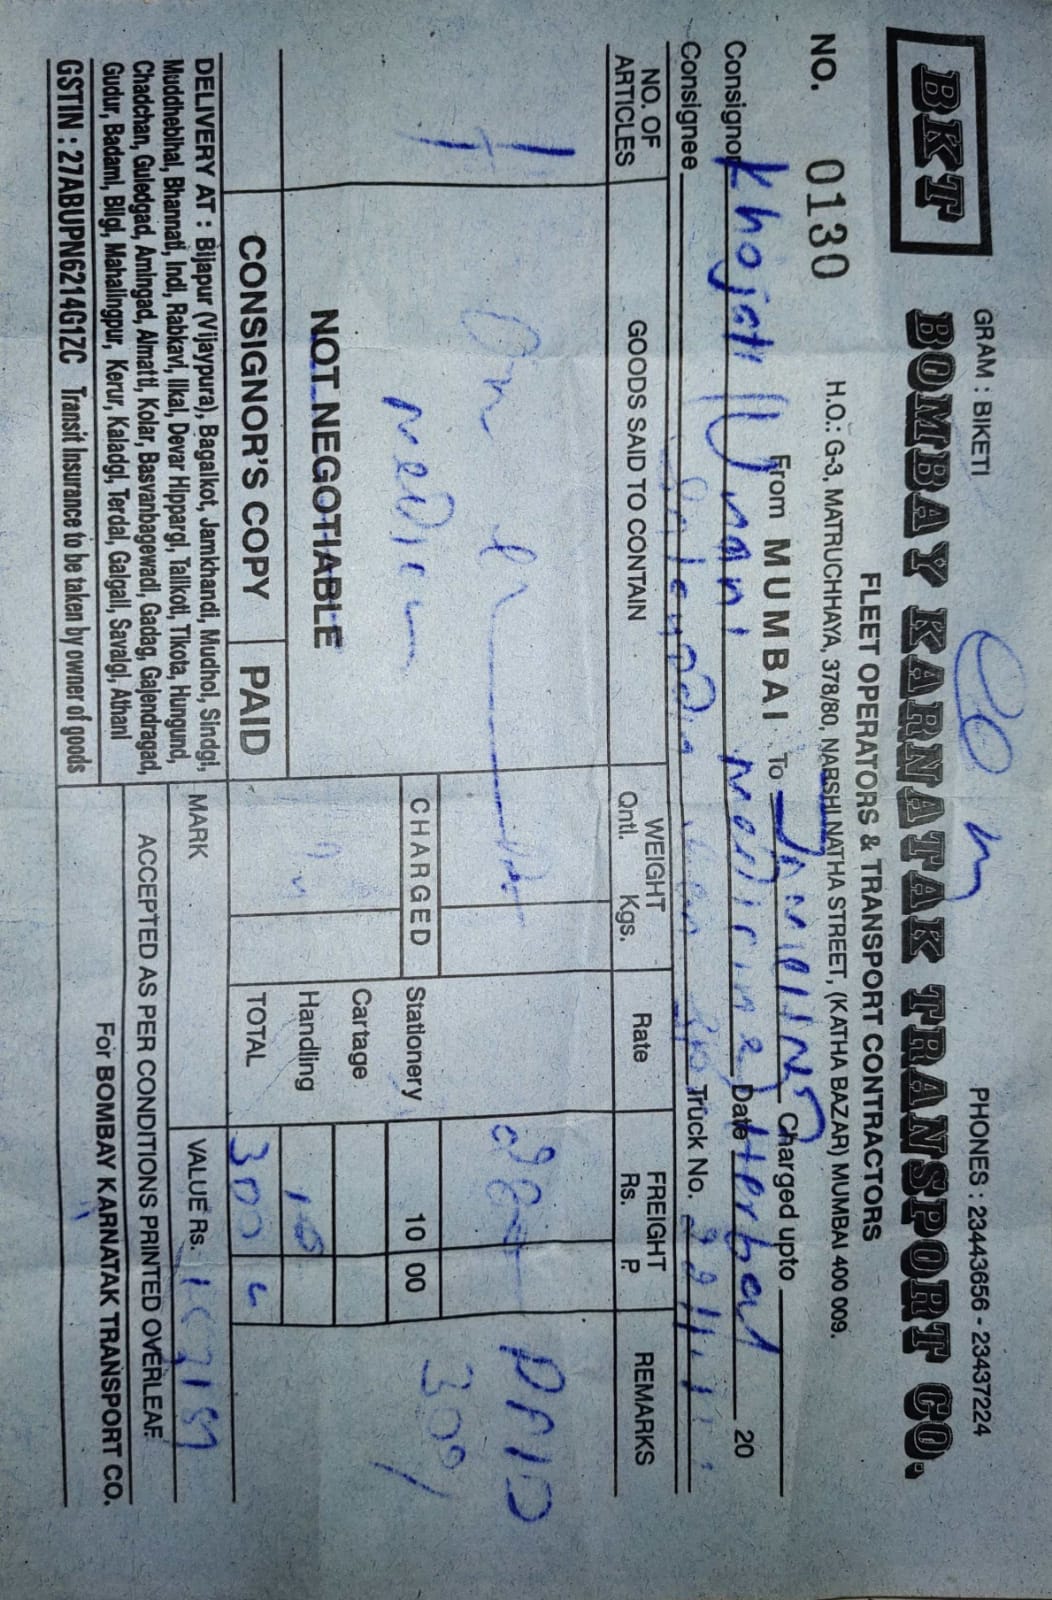 GRAM : BIKETI
PHONES : 23443656 - 23437224
BKT
BOMBAY KARNATAK TRANSPORT CO.
FLEET OPERATORS & TRANSPORT CONTRACTORS
H.O.: G-3, MATRUCHHAYA, 378/80, NARSHI NATHA STREET, (KATHA BAZAR) MUMBAI 400 009.
NO. 0130
From MUMBAI To Charged upto
Consignor Date 20
Consignee Truck No.
NO. OF ARTICLES
GOODS SAID TO CONTAIN
WEIGHT
Qntl. Kgs.
Rate
FREIGHT
Rs. P.
REMARKS
1
PAID
300/
CHARGED
Stationery 10 00
Cartage
Handling 10
TOTAL 300
NOT NEGOTIABLE
CONSIGNOR'S COPY PAID
MARK
VALUE Rs.
DELIVERY AT : Bijapur (Vijaypura), Bagalkot, Jamkhandi, Mudhol, Sindgi,
Muddheblhal, Bhannati, Indi, Rabkavi, Ilkal, Devar Hippargi, Talikoti, Tikota, Hungund,
Chadchan, Guledgad, Amingad, Almatti, Kolar, Basvanbagewadi, Gadag, Gajendragad,
Gudur, Badami, Bilgi, Mahalingpur, Kerur, Kaladgi, Terdal, Galgali, Savalgi, Athani
ACCEPTED AS PER CONDITIONS PRINTED OVERLEAF.
GSTIN : 27ABUPN6214G1ZC Transit Insurance to be taken by owner of goods
For BOMBAY KARNATAK TRANSPORT CO.